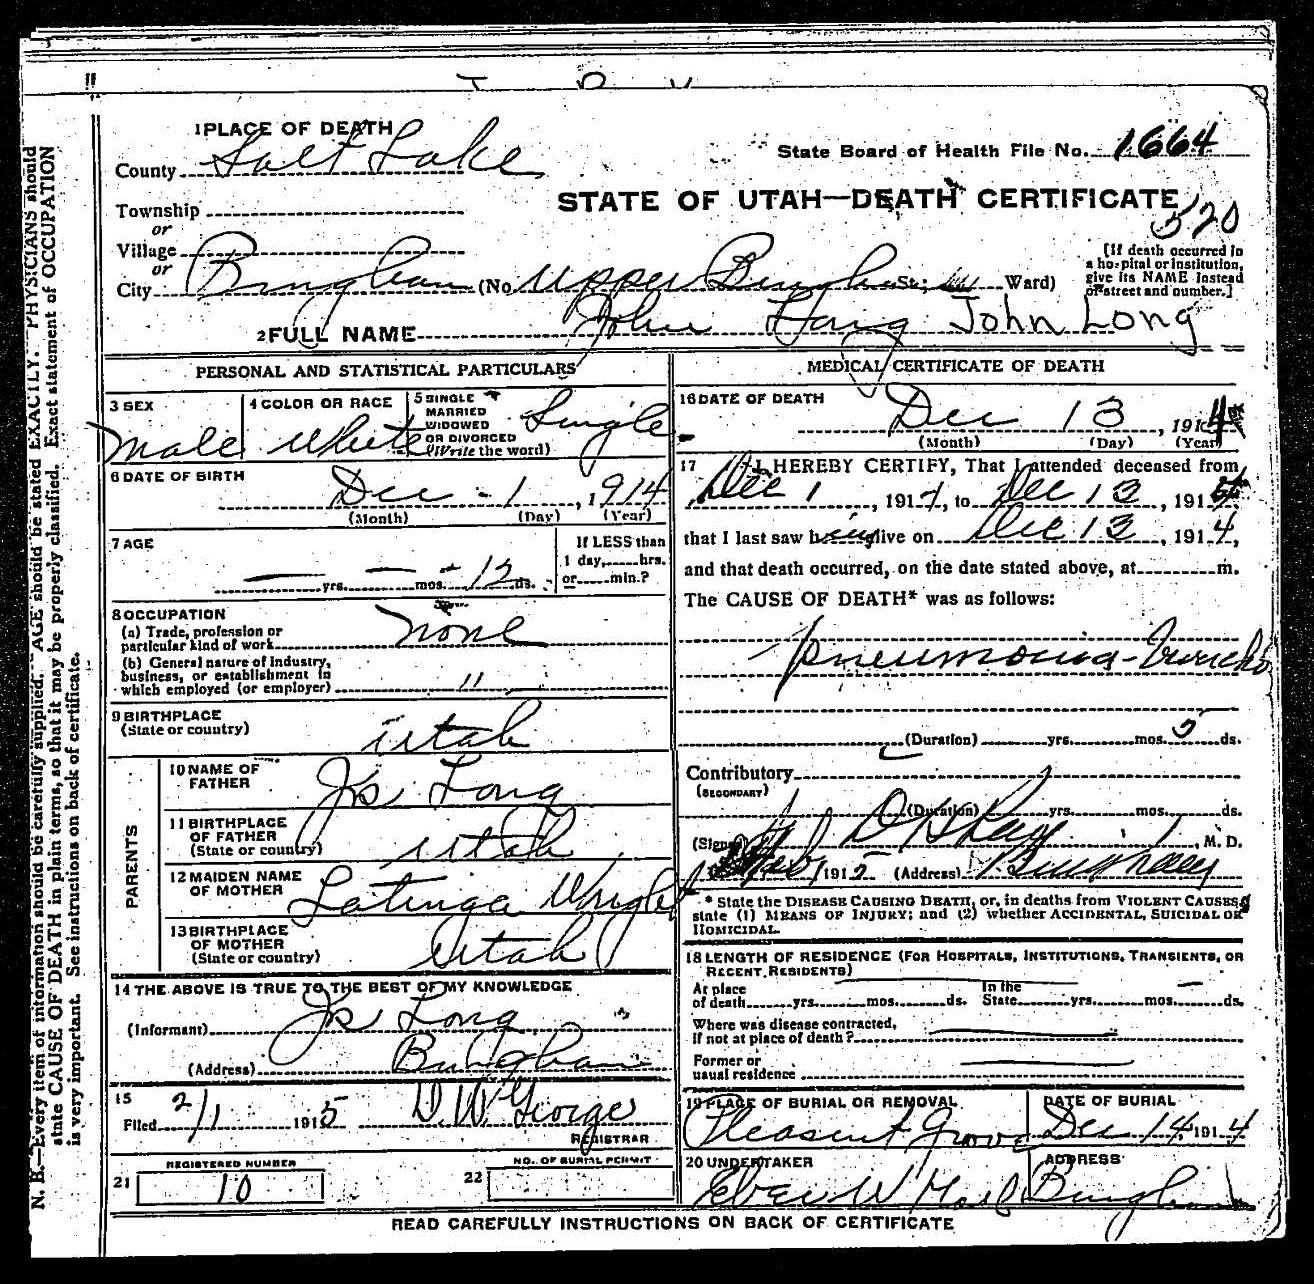 1 PLACE OF DEATH
County Salt Lake
State Board of Health File No. 1664
STATE OF UTAH—DEATH CERTIFICATE
520
Township
or
Village
or
City Bingham (No Upper Bingham St; Ward)
[If death occurred in
a hospital or institution,
give its NAME instead
of street and number.]
2 FULL NAME John Long John Long
PERSONAL AND STATISTICAL PARTICULARS
3 SEX
Male
4 COLOR OR RACE
White
5 SINGLE
MARRIED
WIDOWED
OR DIVORCED
(Write the word)
Single
6 DATE OF BIRTH
Dec - 1, 1914
(Month) (Day) (Year)
7 AGE
— yrs. — mos. 12 ds.
If LESS than
1 day, hrs.
or min.?
8 OCCUPATION
(a) Trade, profession or
particular kind of work none
(b) General nature of Industry,
business, or establishment in
which employed (or employer) "
9 BIRTHPLACE
(State or country)
Utah
PARENTS
10 NAME OF
FATHER
Js Long
11 BIRTHPLACE
OF FATHER
(State or country)
Utah
12 MAIDEN NAME
OF MOTHER
Wright
13 BIRTHPLACE
OF MOTHER
(State or country)
Utah
14 THE ABOVE IS TRUE TO THE BEST OF MY KNOWLEDGE
(Informant) Js Long
(Address) Bingham
15
Filed 2/1 1915 D. W. George
REGISTRAR
REGISTERED NUMBER
21 10
NO. OF BURIAL PERMIT
22
MEDICAL CERTIFICATE OF DEATH
16 DATE OF DEATH
Dec 13, 1914
(Month) (Day) (Year)
17 I HEREBY CERTIFY, That I attended deceased from
Dec 1, 1914, to Dec 13, 1914
that I last saw him alive on Dec 13, 1914,
and that death occurred, on the date stated above, at m.
The CAUSE OF DEATH* was as follows:
Pneumonia-
(Duration) yrs. mos. 5 ds.
Contributory
(SECONDARY)
(Duration) yrs. mos. ds.
(Signed) M. D.
Feb 1 1915 (Address) Bingham
* State the DISEASE CAUSING DEATH, or, in deaths from VIOLENT CAUSES,
state (1) MEANS OF INJURY; and (2) whether ACCIDENTAL, SUICIDAL OR
HOMICIDAL.
18 LENGTH OF RESIDENCE (FOR HOSPITALS, INSTITUTIONS, TRANSIENTS, OR
RECENT RESIDENTS)
At place
of death yrs. mos. ds.
In the
State yrs. mos. ds.
Where was disease contracted,
If not at place of death?
Former or
usual residence
19 PLACE OF BURIAL OR REMOVAL
Pleasent Grove
DATE OF BURIAL
Dec 14 1914
20 UNDERTAKER
W
ADDRESS
Bingham
READ CAREFULLY INSTRUCTIONS ON BACK OF CERTIFICATE
N. B.—Every item of information should be carefully supplied. AGE should be stated EXACTLY. PHYSICIANS should
state CAUSE OF DEATH in plain terms, so that it may be properly classified. Exact statement of OCCUPATION
is very important. See instructions on back of certificate.